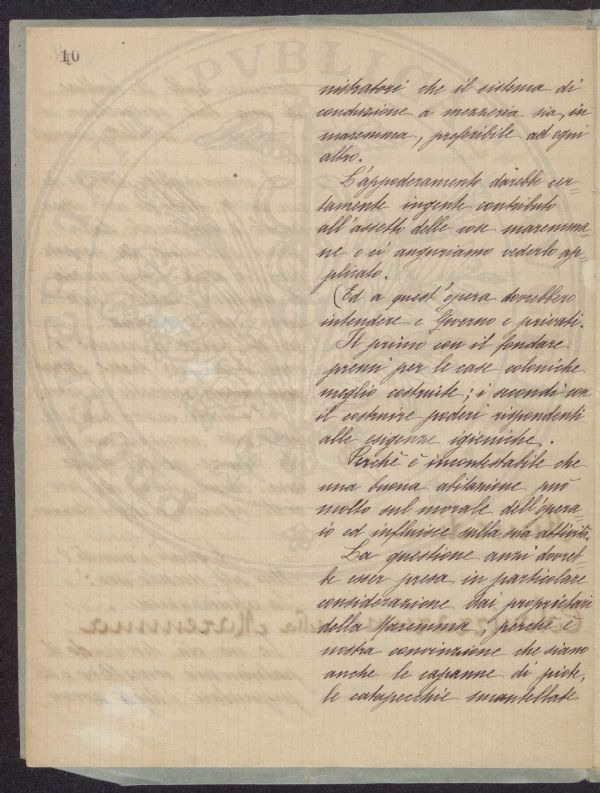 10
nistratori che il sistema di
conduzione a mezzeria sia, in
maremma, preferibile ad ogni
altro.
L'appoderamento darebbe cer-
tamente ingente contributo
all'assetto delle cose maremma-
ne e ci auguriamo vederlo ap-
plicato.
(Ed a quest'opera dovrebbero
intendere e Governo e privati.
Il primo con il fondare
premi per le case coloniche
meglio costruite; i secondi con
il costruire poderi rispondenti
alle esigenze igieniche.
Perchè è incontestabile che
una buona abitazione può
molto sul morale dell'opera-
io ed influisce sulla sua attività.
La questione anzi dovreb-
be esser presa in particolare
considerazione dai proprietari
della Maremma, perchè è
nostra convinzione che siano
anche le capanne di piote,
le catapecchie smantellate